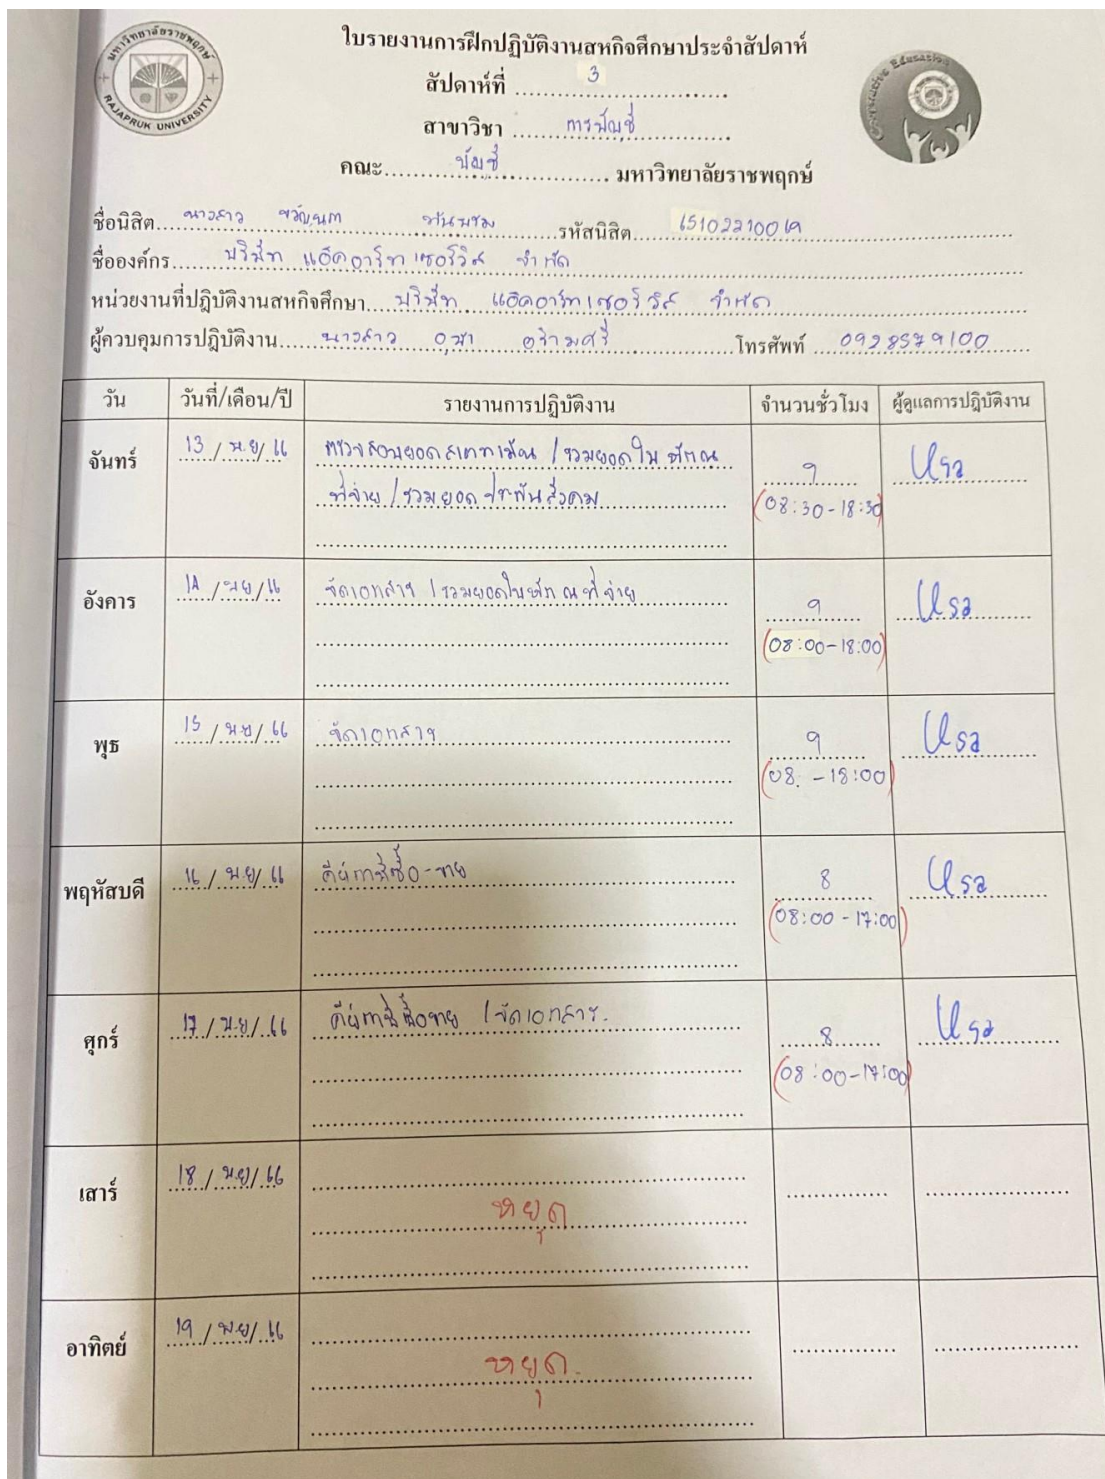 มหาวิทยาลัยราชพฤกษ์
RAJAPRUK UNIVERSITY
Cooperative Education
ใบรายงานการฝึกปฏิบัติงานสหกิจศึกษาประจำสัปดาห์
สัปดาห์ที่ 3
สาขาวิชา การบัญชี
คณะ บัญชี มหาวิทยาลัยราชพฤกษ์
ชื่อนิสิต นางสาว รหัสนิสิต
ชื่อองค์กร บริษัท แอ๊คอาร์ท เซอร์วิส จำกัด
หน่วยงานที่ปฏิบัติงานสหกิจศึกษา บริษัท แอ๊คอาร์ท เซอร์วิส จำกัด
ผู้ควบคุมการปฏิบัติงาน นางสาว อุษา โทรศัพท์ 0928579100
วัน วันที่/เดือน/ปี รายงานการปฏิบัติงาน จำนวนชั่วโมง ผู้ดูแลการปฏิบัติงาน
จันทร์ 13 / พ.ย/ 66 ตรวจสอบยอดสเตทเม้น / รวมยอดใบ หัก ณ 9 Usa
ที่จ่าย / รวมยอด ประกันสังคม (08:30-18:30)
อังคาร 14 / พย / 66 จัดเอกสาร / รวมยอดใบหัก ณ ที่จ่าย 9 Usa
(08:00-18:00)
พุธ 15 / พ.ย / 66 จัดเอกสาร 9 Usa
(08. -18:00)
พฤหัสบดี 16 / พ.ย/ 66 คีย์ภาษีซื้อ-ขาย 8 Usa
(08:00-17:00)
ศุกร์ 17 / พ.ย/ 66 คีย์ภาษีซื้อขาย / จัดเอกสาร. 8 Usa
(08:00-17:00)
เสาร์ 18 / พ.ย/ 66
หยุด
อาทิตย์ 19 / พ.ย/ 66
หยุด.